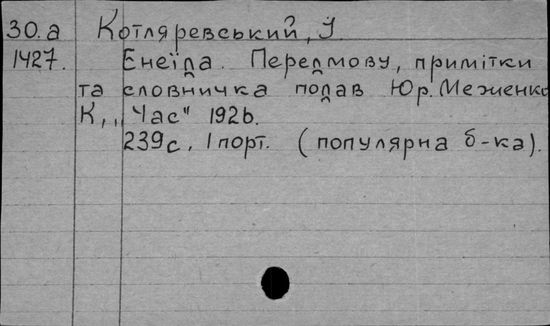 30.а Котляревський, І.
1427. Енеїда. Передмову, примітки
та словничка подав Юр. Меженко
К., „Час" 1926.
239с. 1 порт. (популярна б-ка).